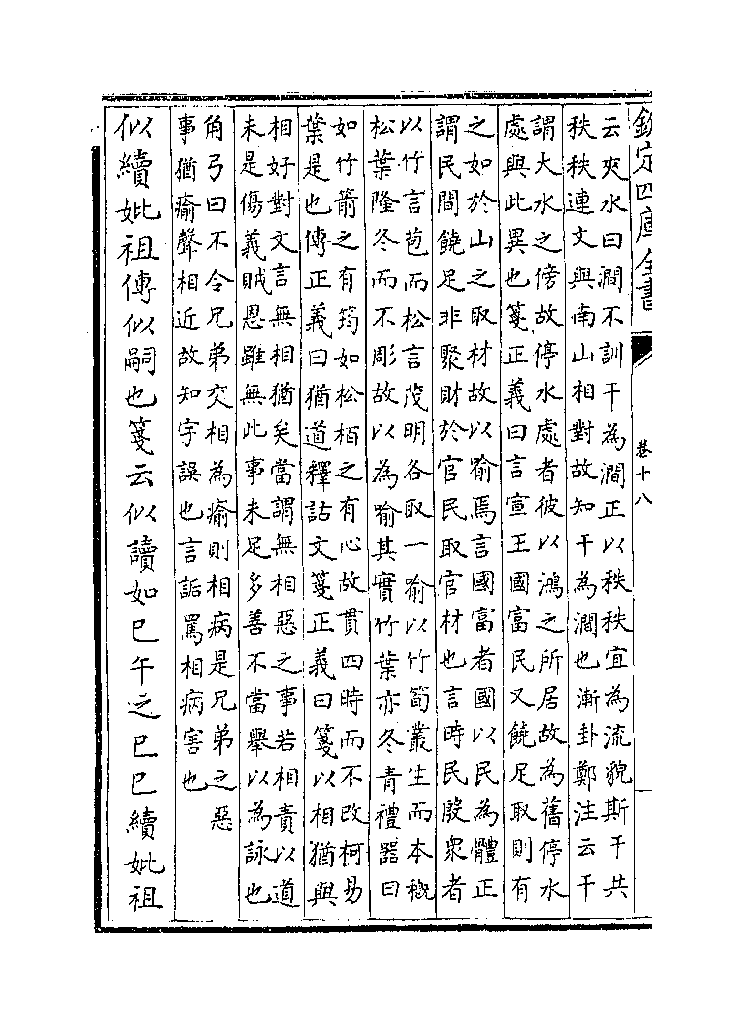 欽定四庫全書
卷十八
云夾水曰澗不訓干為澗正以秩秩宜為流貌斯干共
秩秩連文與南山相對故知干為澗也漸卦鄭注云干
謂大水之傍故停水處者彼以鴻之所居故為舊停水
處與此異也箋正義曰言宣王國富民又饒足取則有
之如於山之取材故以喻焉言國富者國以民為體正
謂民間饒足非聚財於官民取官材也言時民殷衆者
以竹言苞而松言茂明各取一喻以竹筍叢生而本穊
松葉隆冬而不彫故以為喻其實竹葉亦冬青禮器曰
如竹箭之有筠如松栢之有心故貫四時而不改柯易
葉是也傳正義曰猶道釋詁文箋正義曰箋以相猶與
相好對文言無相猶矣當謂無相惡之事若相責以道
未是傷義賊恩雖無此事未足多善不當舉以為詠也
角弓曰不令兄弟交相為瘉則相病是兄弟之惡
事猶瘉聲相近故知字誤也言詬罵相病害也
似續妣祖傳似嗣也箋云似讀如巳午之巳巳續妣祖